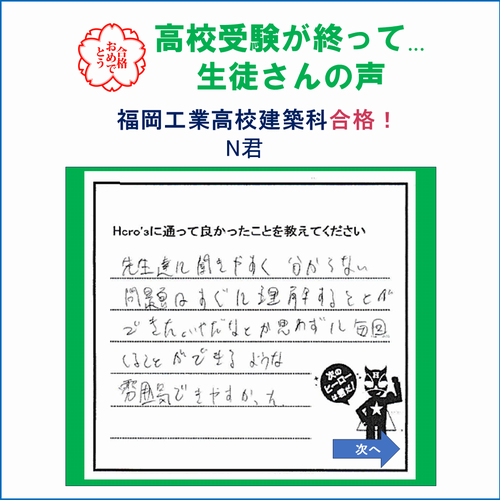 合格
おめで
とう
高校受験が終って...
生徒さんの声
福岡工業高校建築科合格！
N君
Hero'sに通って良かったことを教えてください
先生達に聞きやすく 分からない
問題はすぐに理解することが
できたいやだなとか思わずに毎回
くることができるような
雰囲気できやすかった
次の
ヒーロー
は君だ!
H
次へ